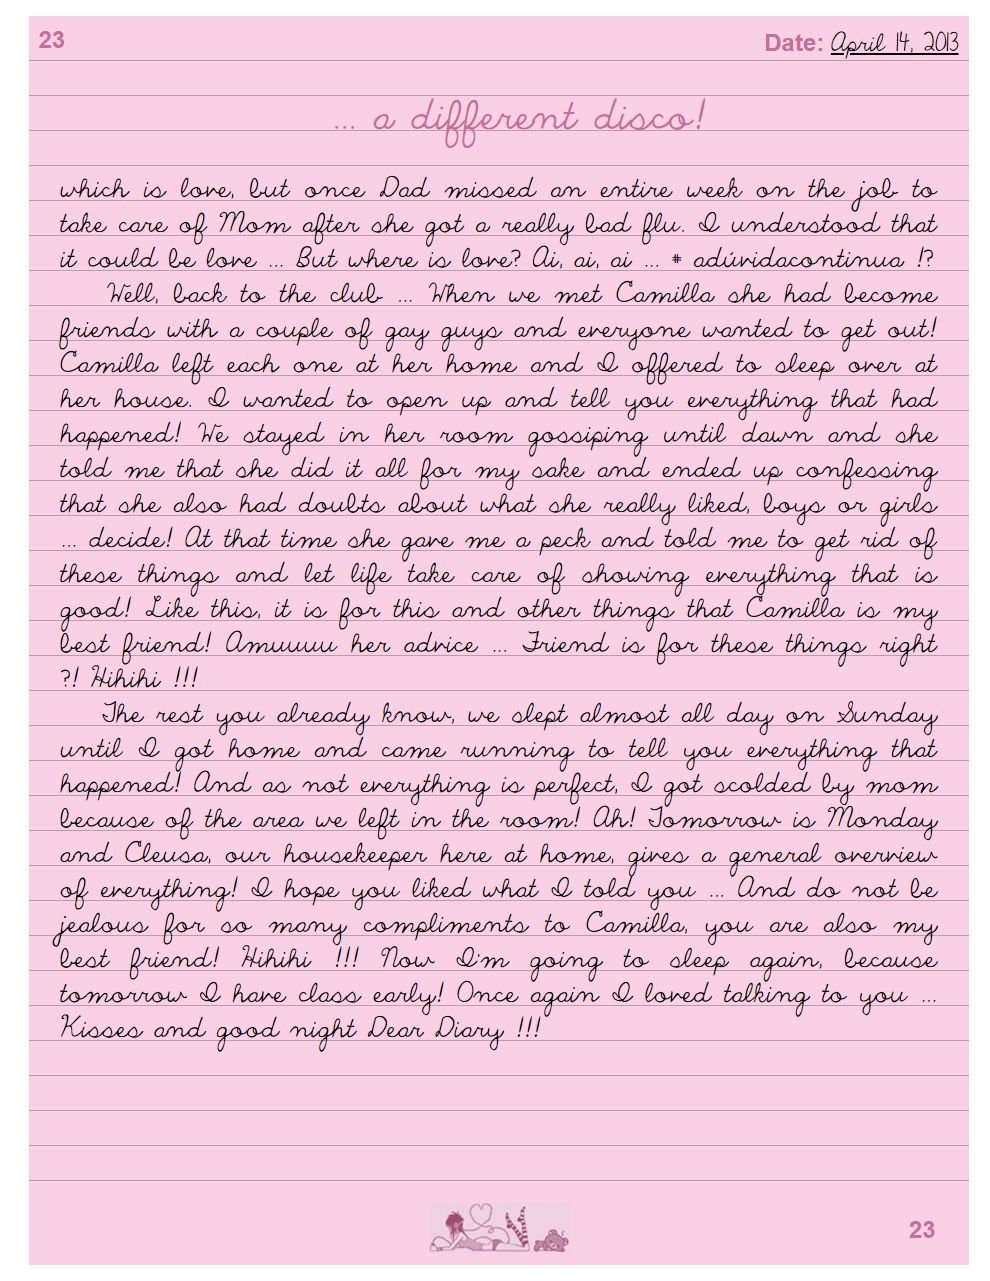 23
Date: April 14, 2013
... a different disco!
which is love, but once Dad missed an entire week on the job to
take care of Mom after she got a really bad flu. I understood that
it could be love ... But where is love? Ai, ai, ai ... # adúvidacontinua !?
Well, back to the club ... When we met Camilla she had become
friends with a couple of gay guys and everyone wanted to get out!
Camilla left each one at her home and I offered to sleep over at
her house. I wanted to open up and tell you everything that had
happened! We stayed in her room gossiping until dawn and she
told me that she did it all for my sake and ended up confessing
that she also had doubts about what she really liked, boys or girls
... decide! At that time she gave me a peck and told me to get rid of
these things and let life take care of showing everything that is
good! Like this, it is for this and other things that Camilla is my
best friend! Amuuuuu her advice ... Friend is for these things right
?! Hihihi !!!
The rest you already know, we slept almost all day on Sunday
until I got home and came running to tell you everything that
happened! And as not everything is perfect, I got scolded by mom
because of the area we left in the room! Ah! Tomorrow is Monday
and Cleusa, our housekeeper here at home, gives a general overview
of everything! I hope you liked what I told you ... And do not be
jealous for so many compliments to Camilla, you are also my
best friend! Hihihi !!! Now I'm going to sleep again, because
tomorrow I have class early! Once again I loved talking to you ...
Kisses and good night Dear Diary !!!
23